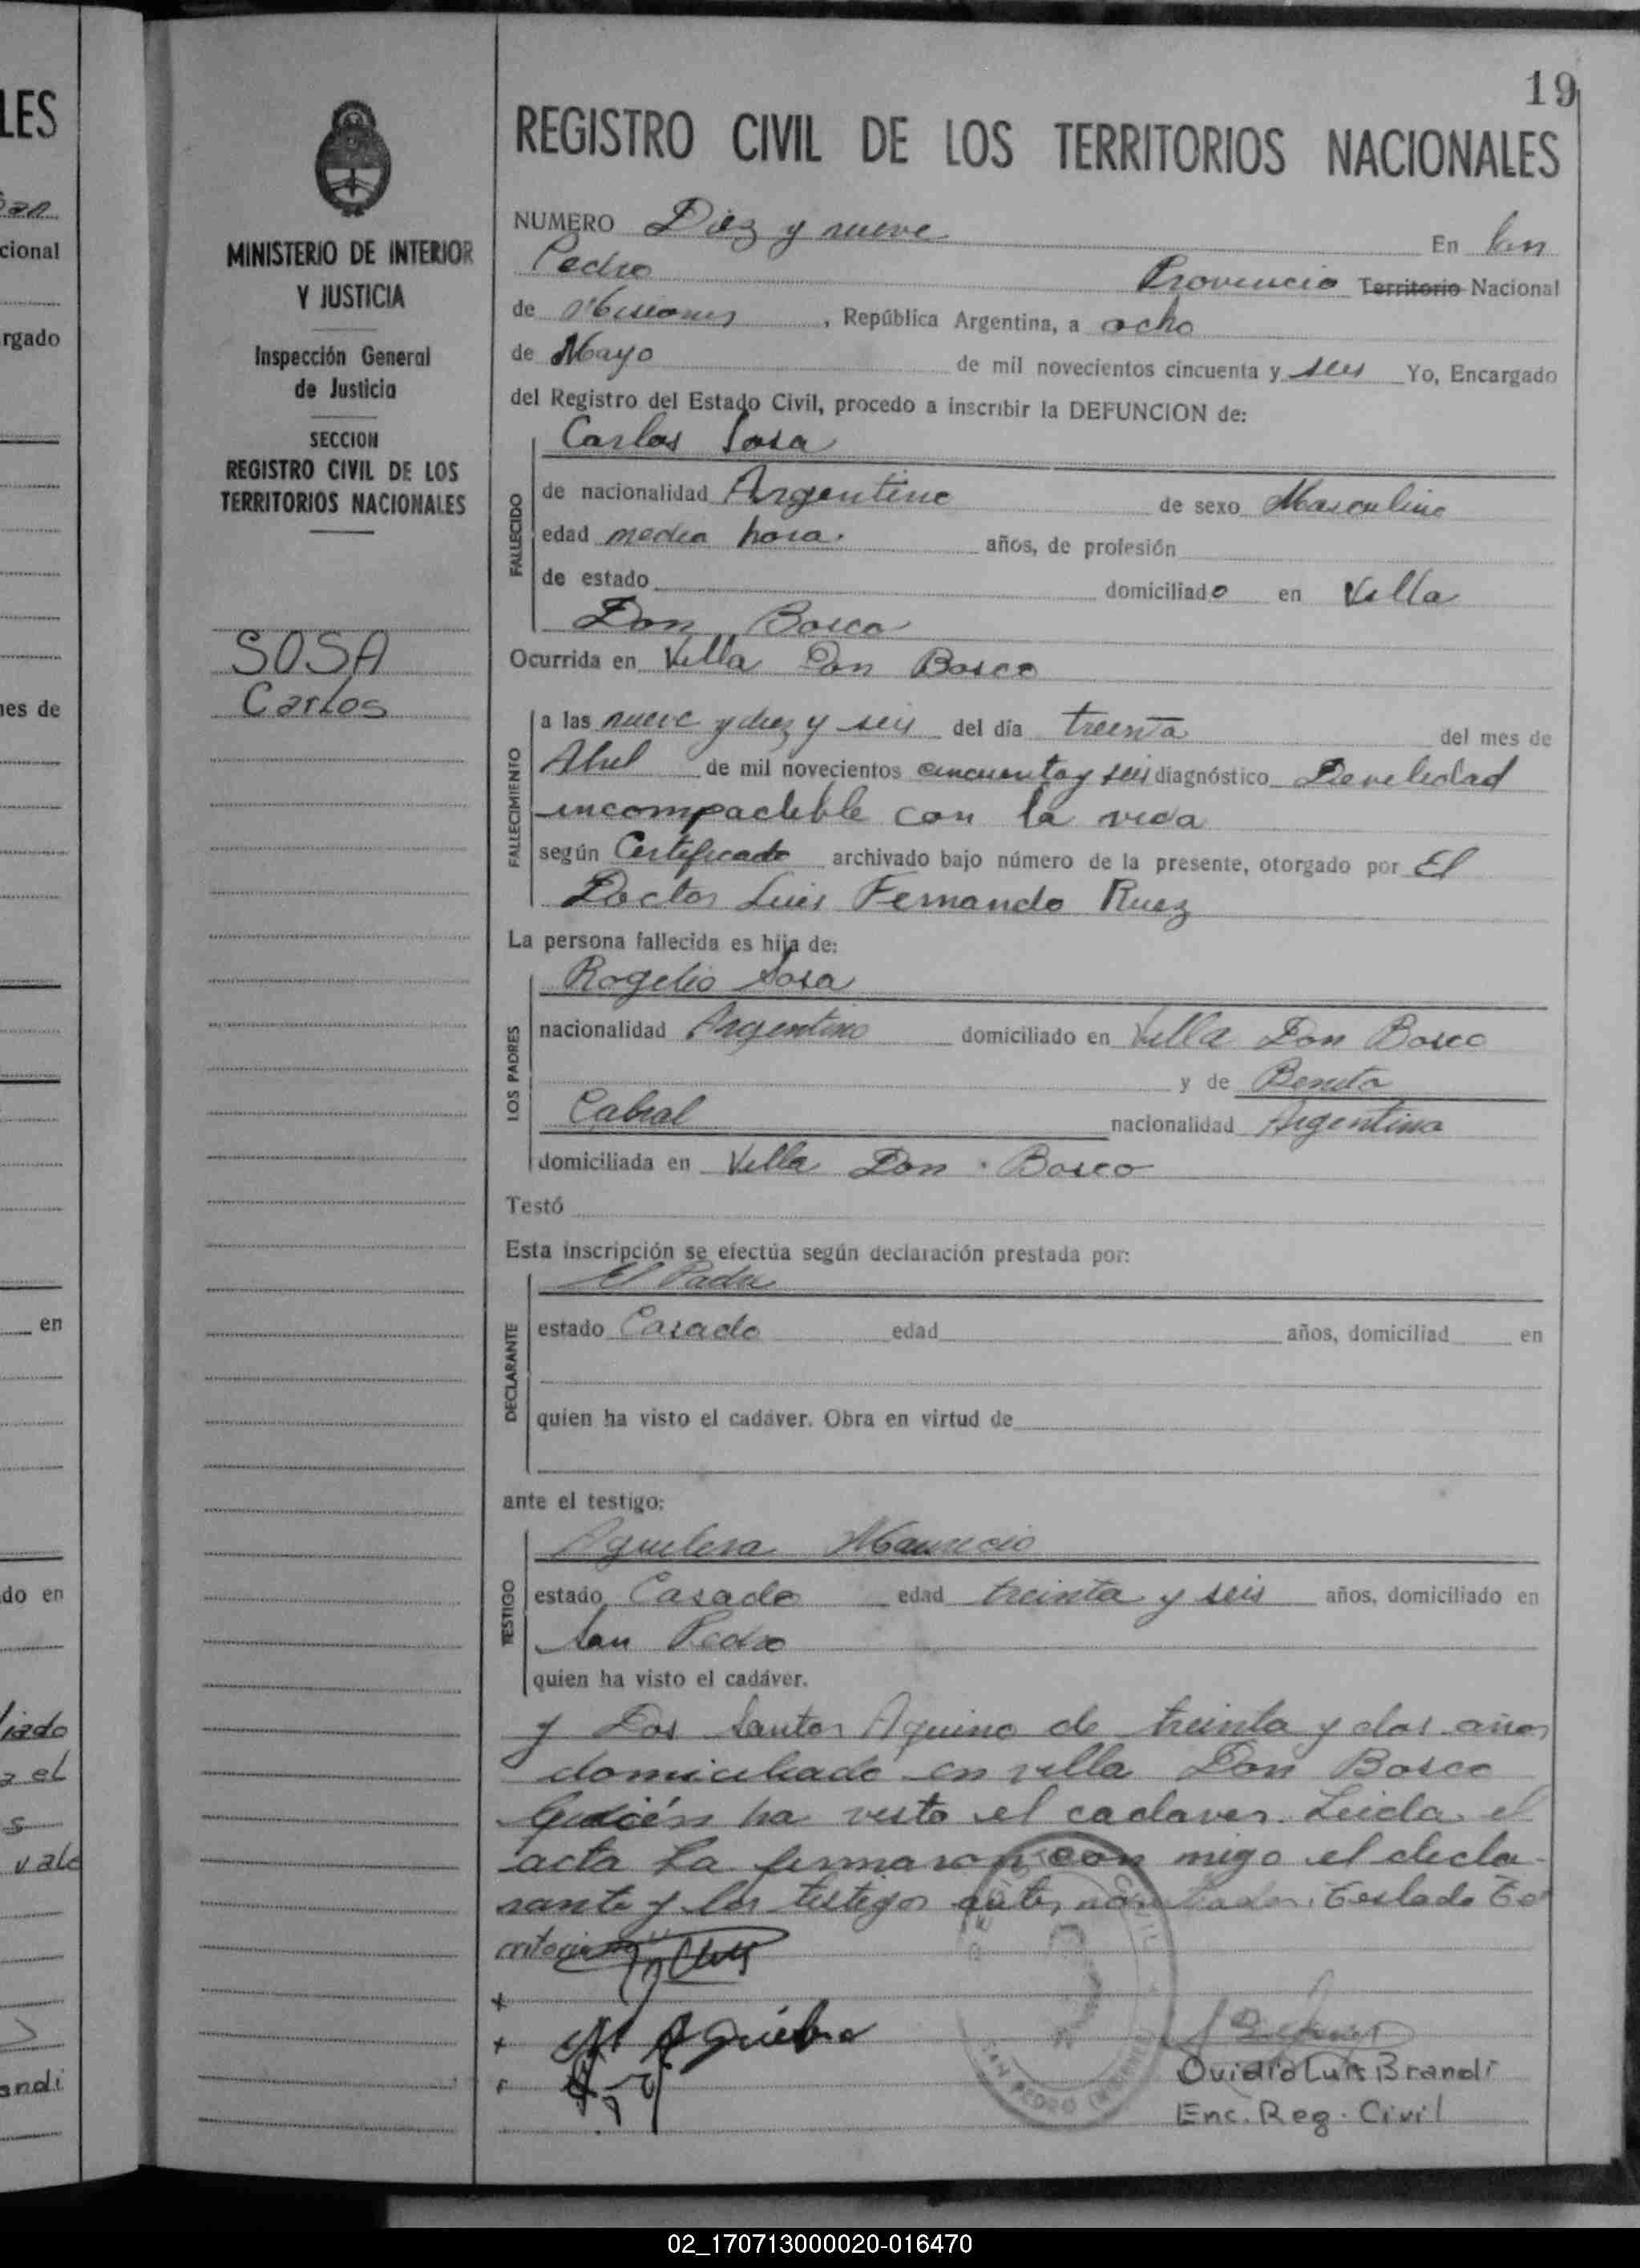 LES
19
REGISTRO CIVIL DE LOS TERRITORIOS NACIONALES
MINISTERIO DE INTERIOR
Y JUSTICIA
Inspección General
de Justicia
SECCION
REGISTRO CIVIL DE LOS
TERRITORIOS NACIONALES
SOSA
Carlos
NUMERO Diez y nueve En San
Pedro Provincia Territorio Nacional
de Misiones, República Argentina, a ocho
de Mayo de mil novecientos cincuenta y seis Yo, Encargado
del Registro del Estado Civil, procedo a inscribir la DEFUNCION de:
Carlos Sosa
FALLECIDO
de nacionalidad Argentino de sexo Masculino
edad media hora. años, de profesión
de estado domiciliado en Villa
Don Bosco
Ocurrida en Villa Don Bosco
FALLECIMIENTO
a las nueve y diez y seis del día treinta del mes de
Abril de mil novecientos cincuenta y seis diagnóstico Devilidad
incompactible con la vida
según Certificado archivado bajo número de la presente, otorgado por El
Doctor Luis Fernando Ruez
La persona fallecida es hija de:
Rogelio Sosa
LOS PADRES
nacionalidad Argentino domiciliado en Villa Don Bosco
y de Benita
Cabral nacionalidad Argentina
domiciliada en Villa Don Bosco
Testó
Esta inscripción se efectúa según declaración prestada por:
El Padre
DECLARANTE
estado Casado edad años, domiciliad en
quien ha visto el cadáver. Obra en virtud de
ante el testigo:
Aguilera Mauricio
TESTIGO
estado Casado edad treinta y seis años, domiciliado en
San Pedro
quien ha visto el cadáver.
y Dos Santos Aquino de treinta y dos años
domiciliado en villa Don Bosco
Quién ha visto el cadaver. Leida el
acta la firmaron con migo el decla-
rante y los testigos antes Testado Te
M Aguilera
SAN PEDRO
Ovidio Luis Brandi
Enc. Reg. Civil
cional
rgado
es de
en
do en
iado
el
s
vale
andi
02_170713000020-016470